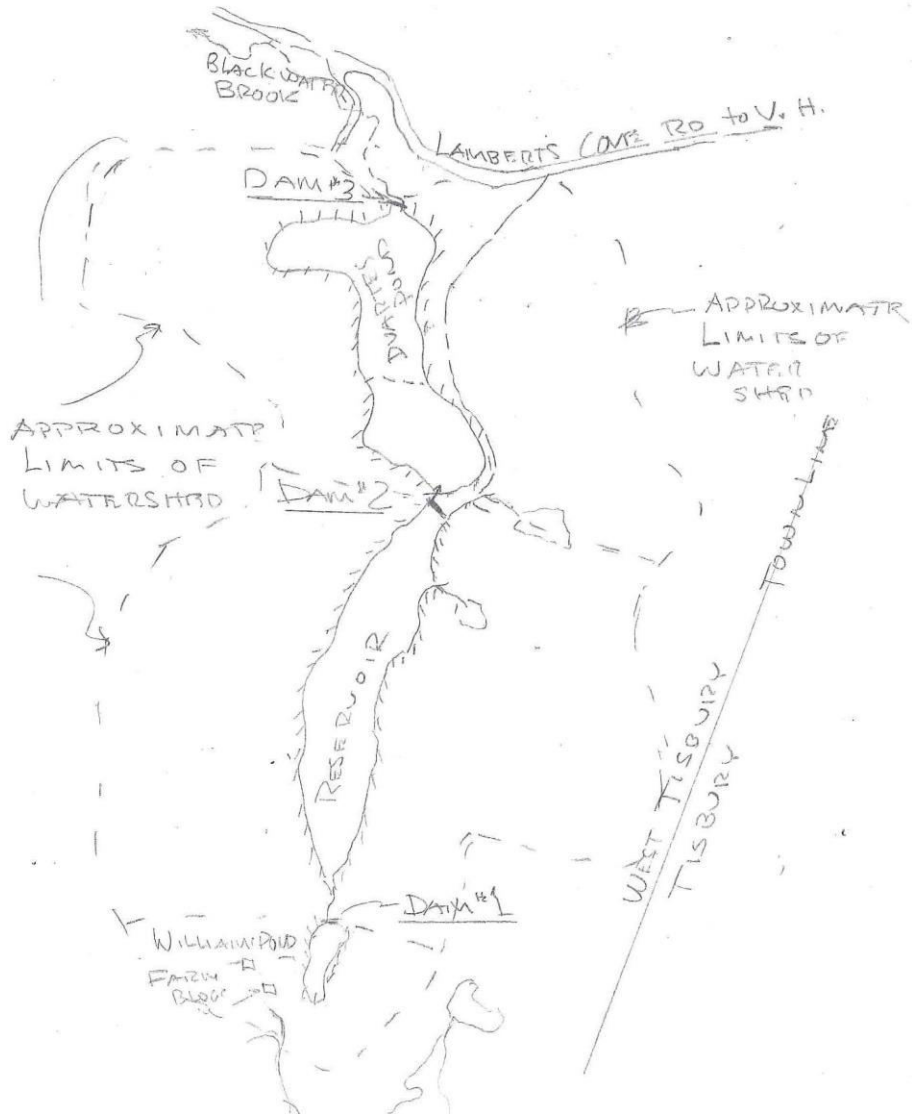 BLACKWATER
BROOK
LAMBERTS COVE RD to V. H.
DAM #3
DUARTES
POND
APPROXIMATE
LIMITS OF
WATER
SHED
APPROXIMATE
LIMITS OF
WATERSHED
DAM #2
TOWN LINE
RESERVOIR
WEST TISBURY
TISBURY
DAM #1
WILLIAM POND
FARM
BLDGS